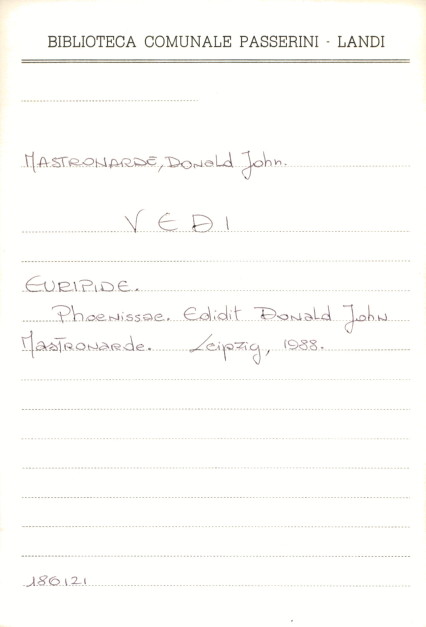 BIBLIOTECA COMUNALE PASSERINI - LANDI
MASTRONARDE, Donald John.
VEDI
EURIPIDE.
Phoenissae. Edidit Donald John
Mastronarde. Leipzig, 1988.
186121